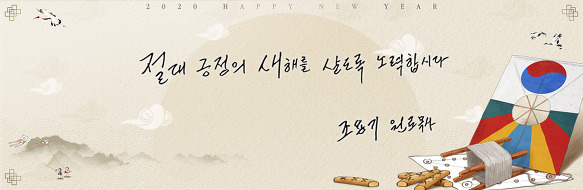 2020 HAPPY NEW YEAR
절대 긍정의 새해를 살도록 노력합시다
조용기 원로목사